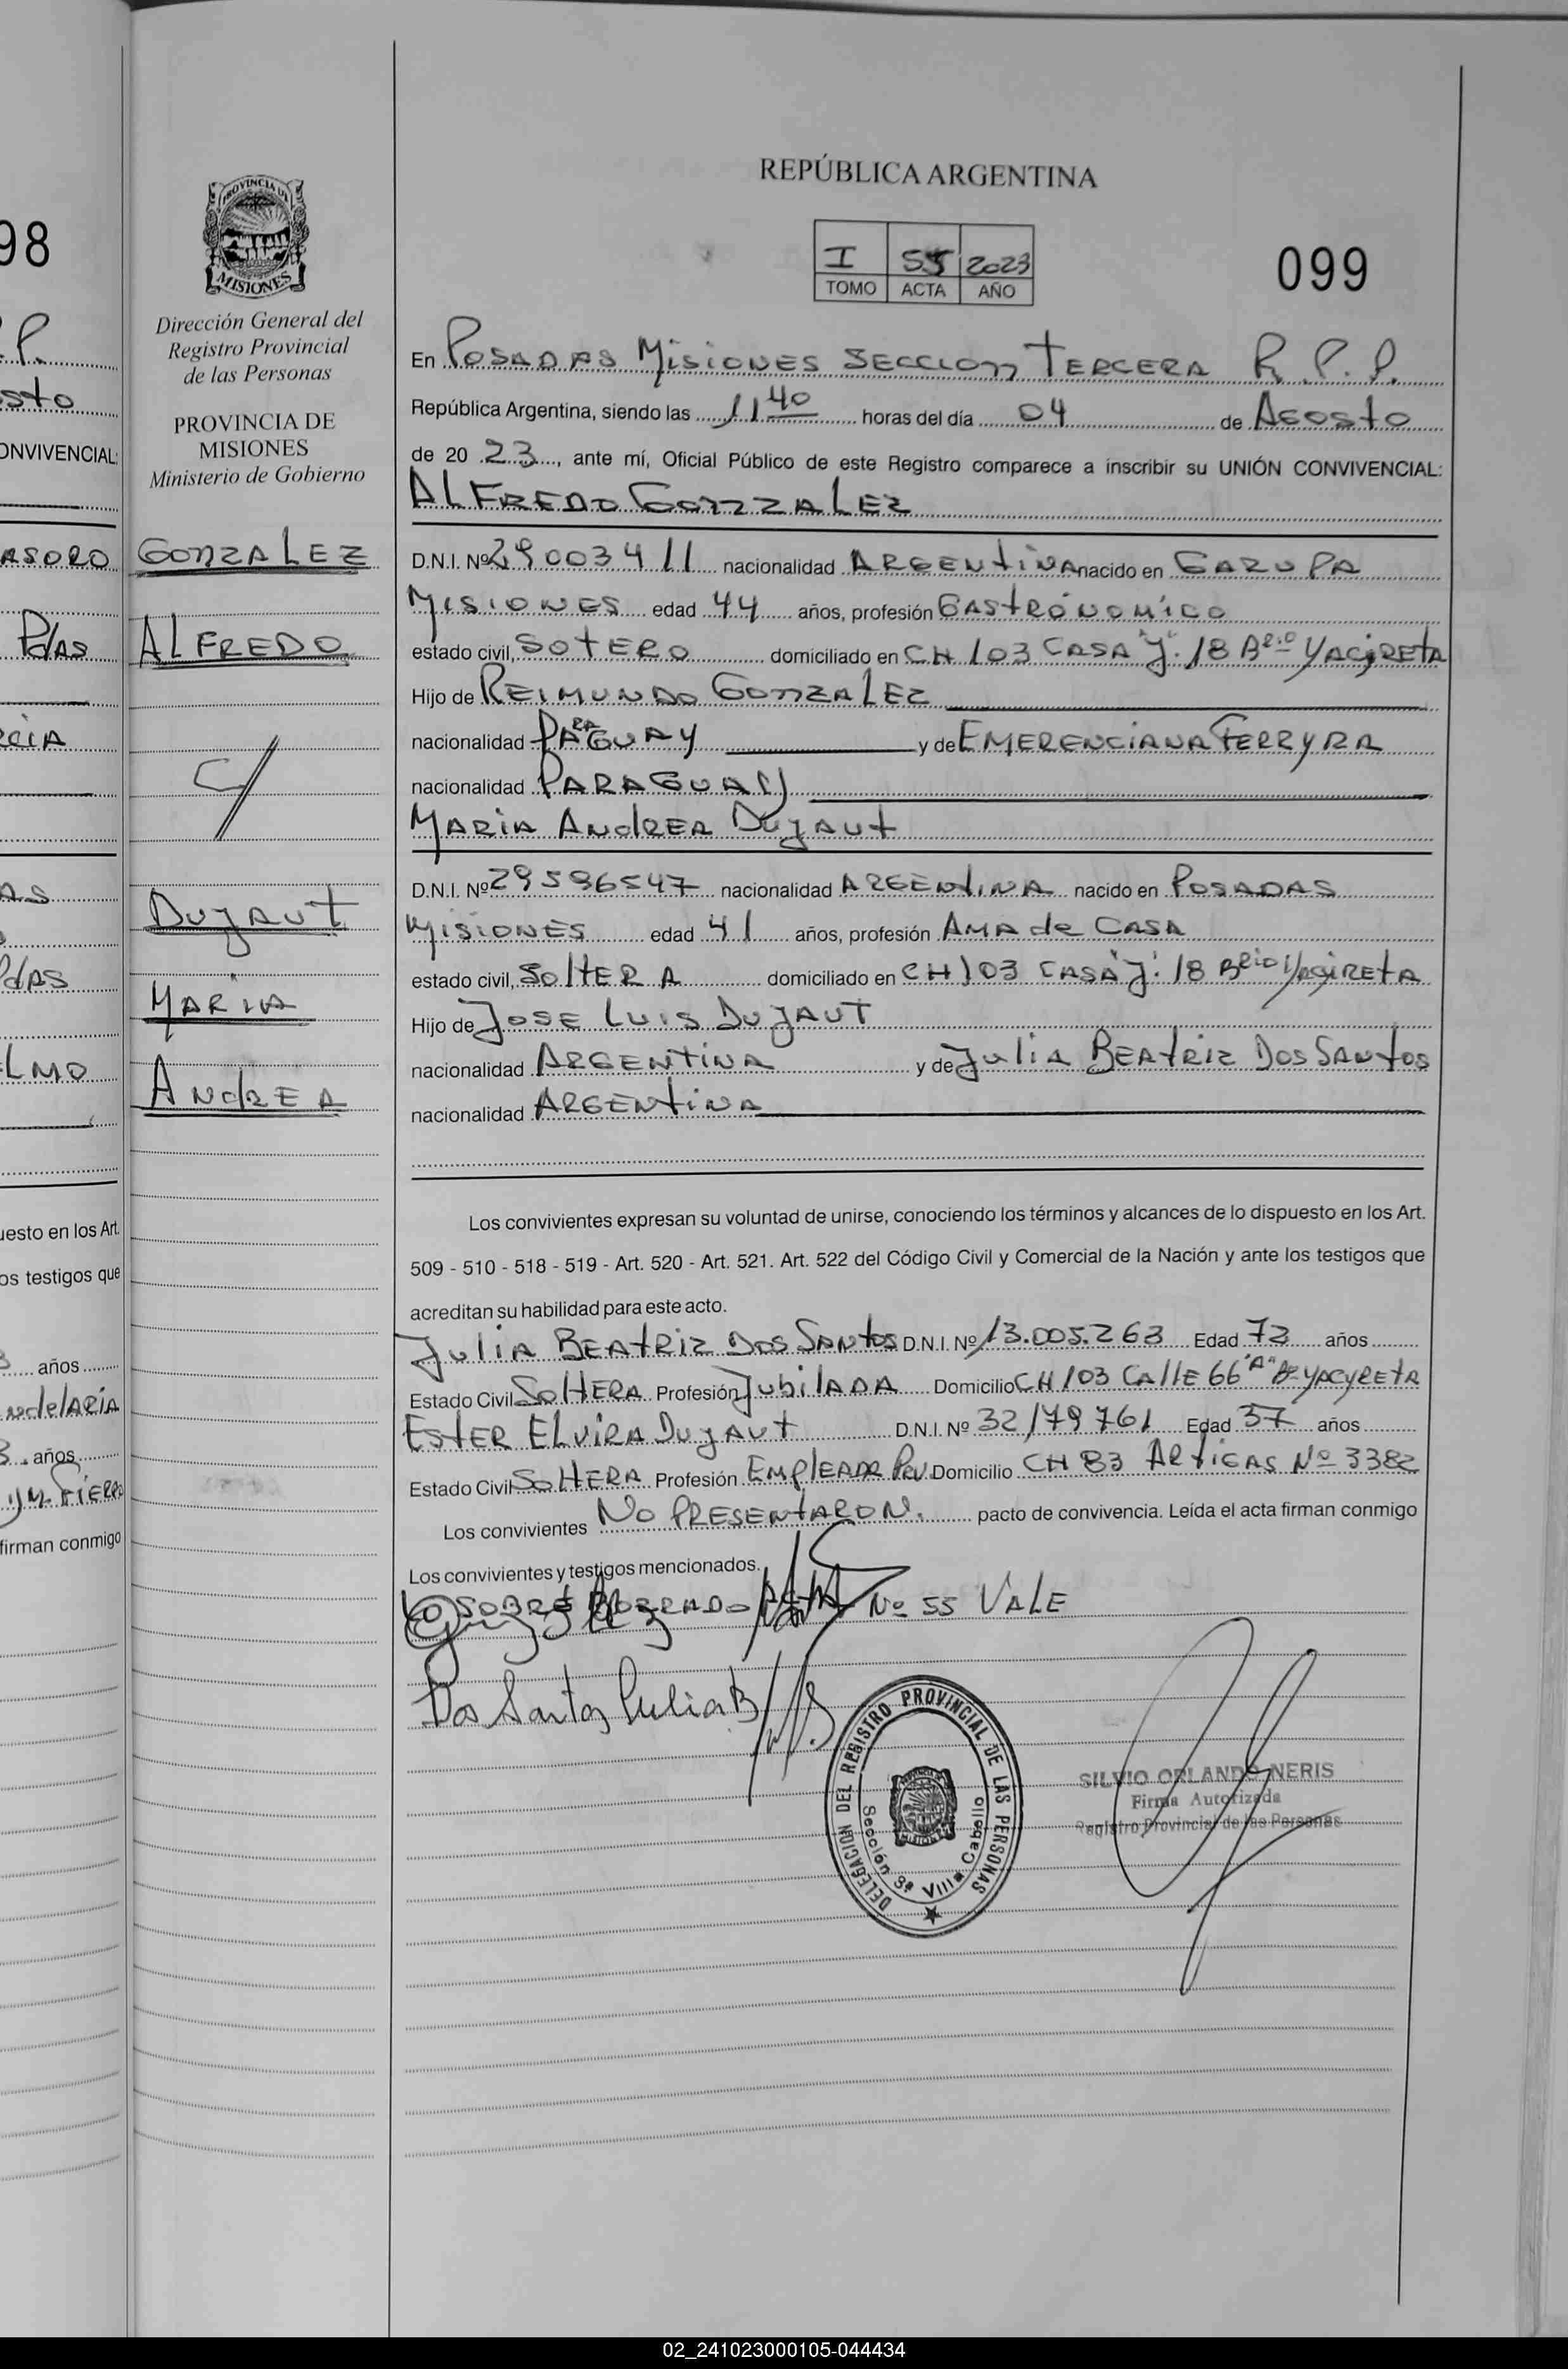 98
P.
sto
ONVIVENCIAL:
ASORO
Pdas
CIA
AS
PdAS
ELMO
uesto en los Art.
os testigos que
años
ndelARIA
3 años
FIERRO
firman conmigo
PROVINCIA DE
MISIONES
Dirección General del
Registro Provincial
de las Personas
PROVINCIA DE
MISIONES
Ministerio de Gobierno
GONZALEZ
ALFREDO
C/
DUJAUT
MARIA
ANdREA
REPÚBLICA ARGENTINA
I 55 2023
TOMO ACTA AÑO
099
En POSADAS MISIONES SECCION TERCERA R.P.P.
República Argentina, siendo las 11 40 horas del día 04 de AGOSto
de 20 23, ante mí, Oficial Público de este Registro comparece a inscribir su UNIÓN CONVIVENCIAL:
ALFREDO GONZALEZ
D.N.I. Nº 29003411 nacionalidad ARGENtiNA nacido en GARUPA
MISIONES edad 44 años, profesión GAStRÓNOMICO
estado civil, SOtERO domiciliado en CH 103 CASA "J" 18 Brio YACIREtA
Hijo de REIMUNDO GONZALEZ
nacionalidad PARAGUAY y de EMERENCIANA FERRYRA
nacionalidad PARAGUAY
MARIA ANdREA DUJAUt
D.N.I. Nº 29596547 nacionalidad ARGENtiNA nacido en POSADAS
MISIONES edad 41 años, profesión AMA de CASA
estado civil, SOltERA domiciliado en CH 103 CASA "J" 18 BRio YACIREtA
Hijo de JOSE LUIS DUJAUT
nacionalidad ARGENtiNA y de JuliA BEAtRiz DOS SANtOS
nacionalidad ARGENtiNA
Los convivientes expresan su voluntad de unirse, conociendo los términos y alcances de lo dispuesto en los Art.
509 - 510 - 518 - 519 - Art. 520 - Art. 521. Art. 522 del Código Civil y Comercial de la Nación y ante los testigos que
acreditan su habilidad para este acto.
JuliA BEAtRiz DOS SANtOS D.N.I. Nº 13.005.263 Edad 73 años
Estado Civil SOltERA Profesión JubilADA Domicilio CH 103 CAllE 66 "A" Bº YACYREtA
EStER ELviRA DUJAUt D.N.I. Nº 32179761 Edad 37 años
Estado Civil SOltERA Profesión EMplEADA PRV. Domicilio CH 83 ARtiGAS Nº 3382
Los convivientes NO PRESENtARON. pacto de convivencia. Leída el acta firman conmigo
Los convivientes y testigos mencionados.
LO SOBRE BORRADO ACtA Nº 55 VALE
Dos Santos Julia B
DELEGACION DEL REGISTRO PROVINCIAL DE LAS PERSONAS
Sección 3ª Villa Cabello
SILVIO ORLANDO NERIS
Firma Autorizada
Registro Provincial de las Personas
02_241023000105-044434